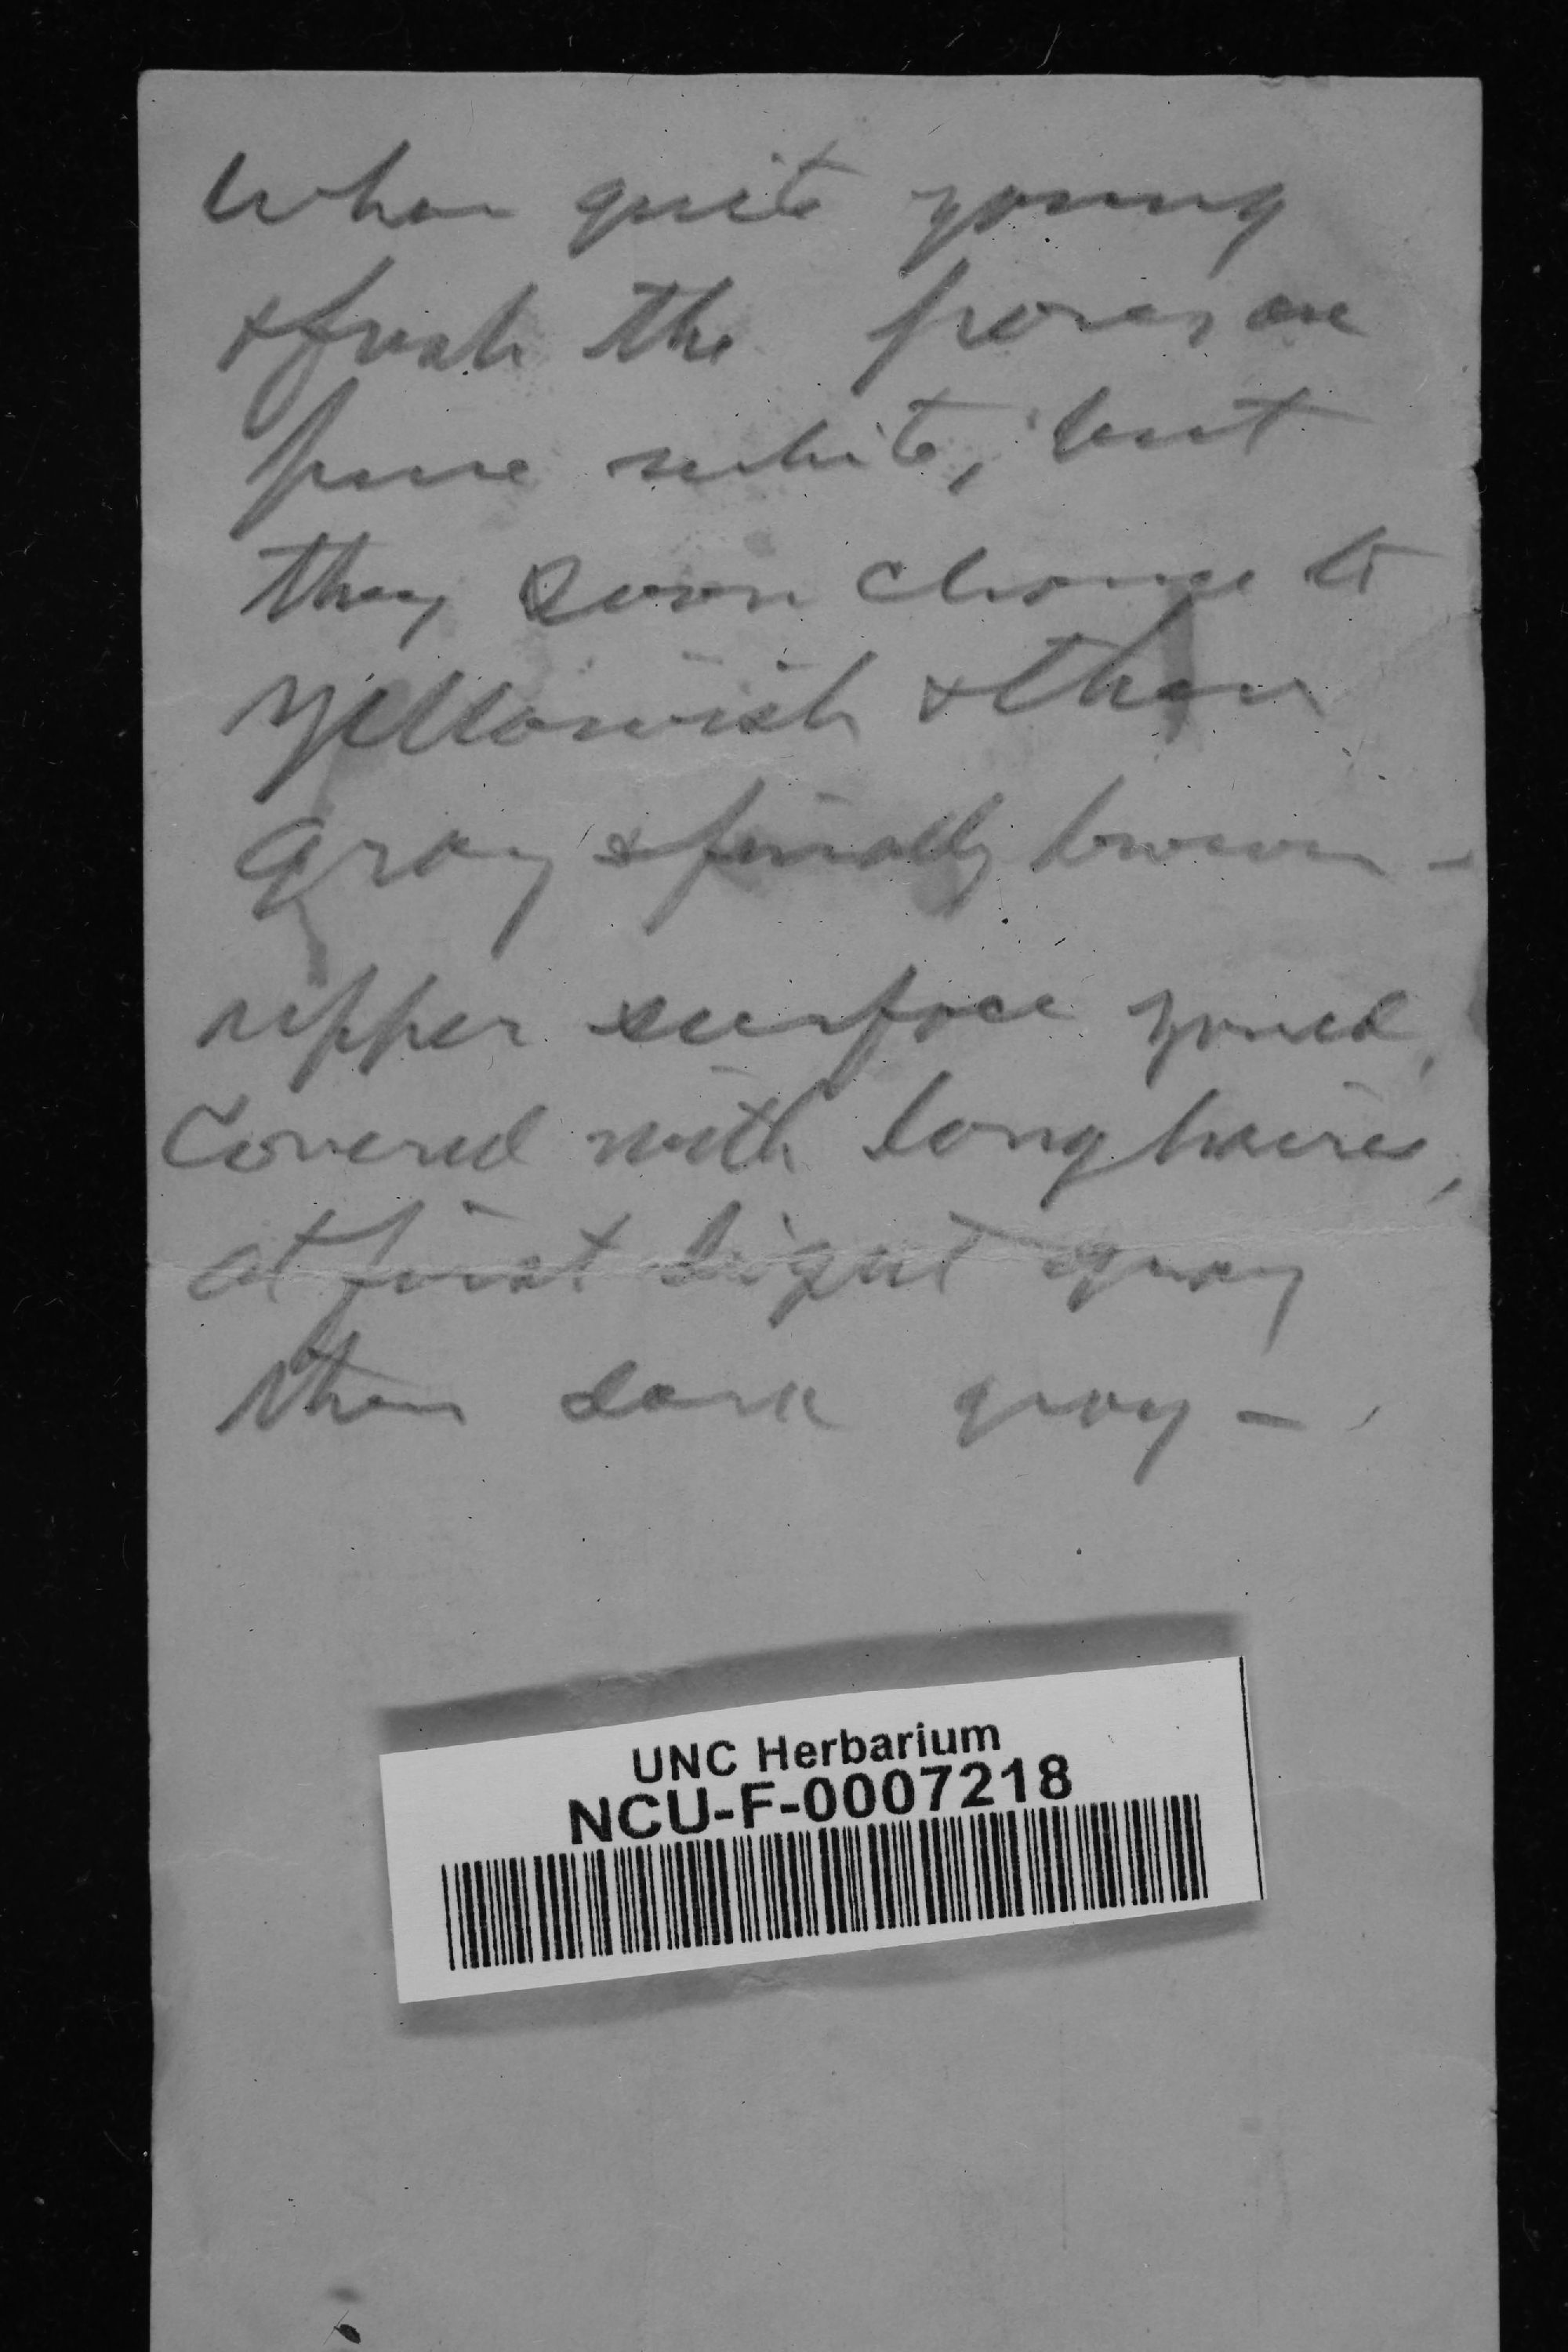 When quite young
& fresh the pores are
pure white, but
they soon change to
yellowish & then
gray & finally brown –
upper surface zoned,
Covered with long hairs,
at first light gray
then dark gray –
UNC Herbarium
NCU-F-0007218